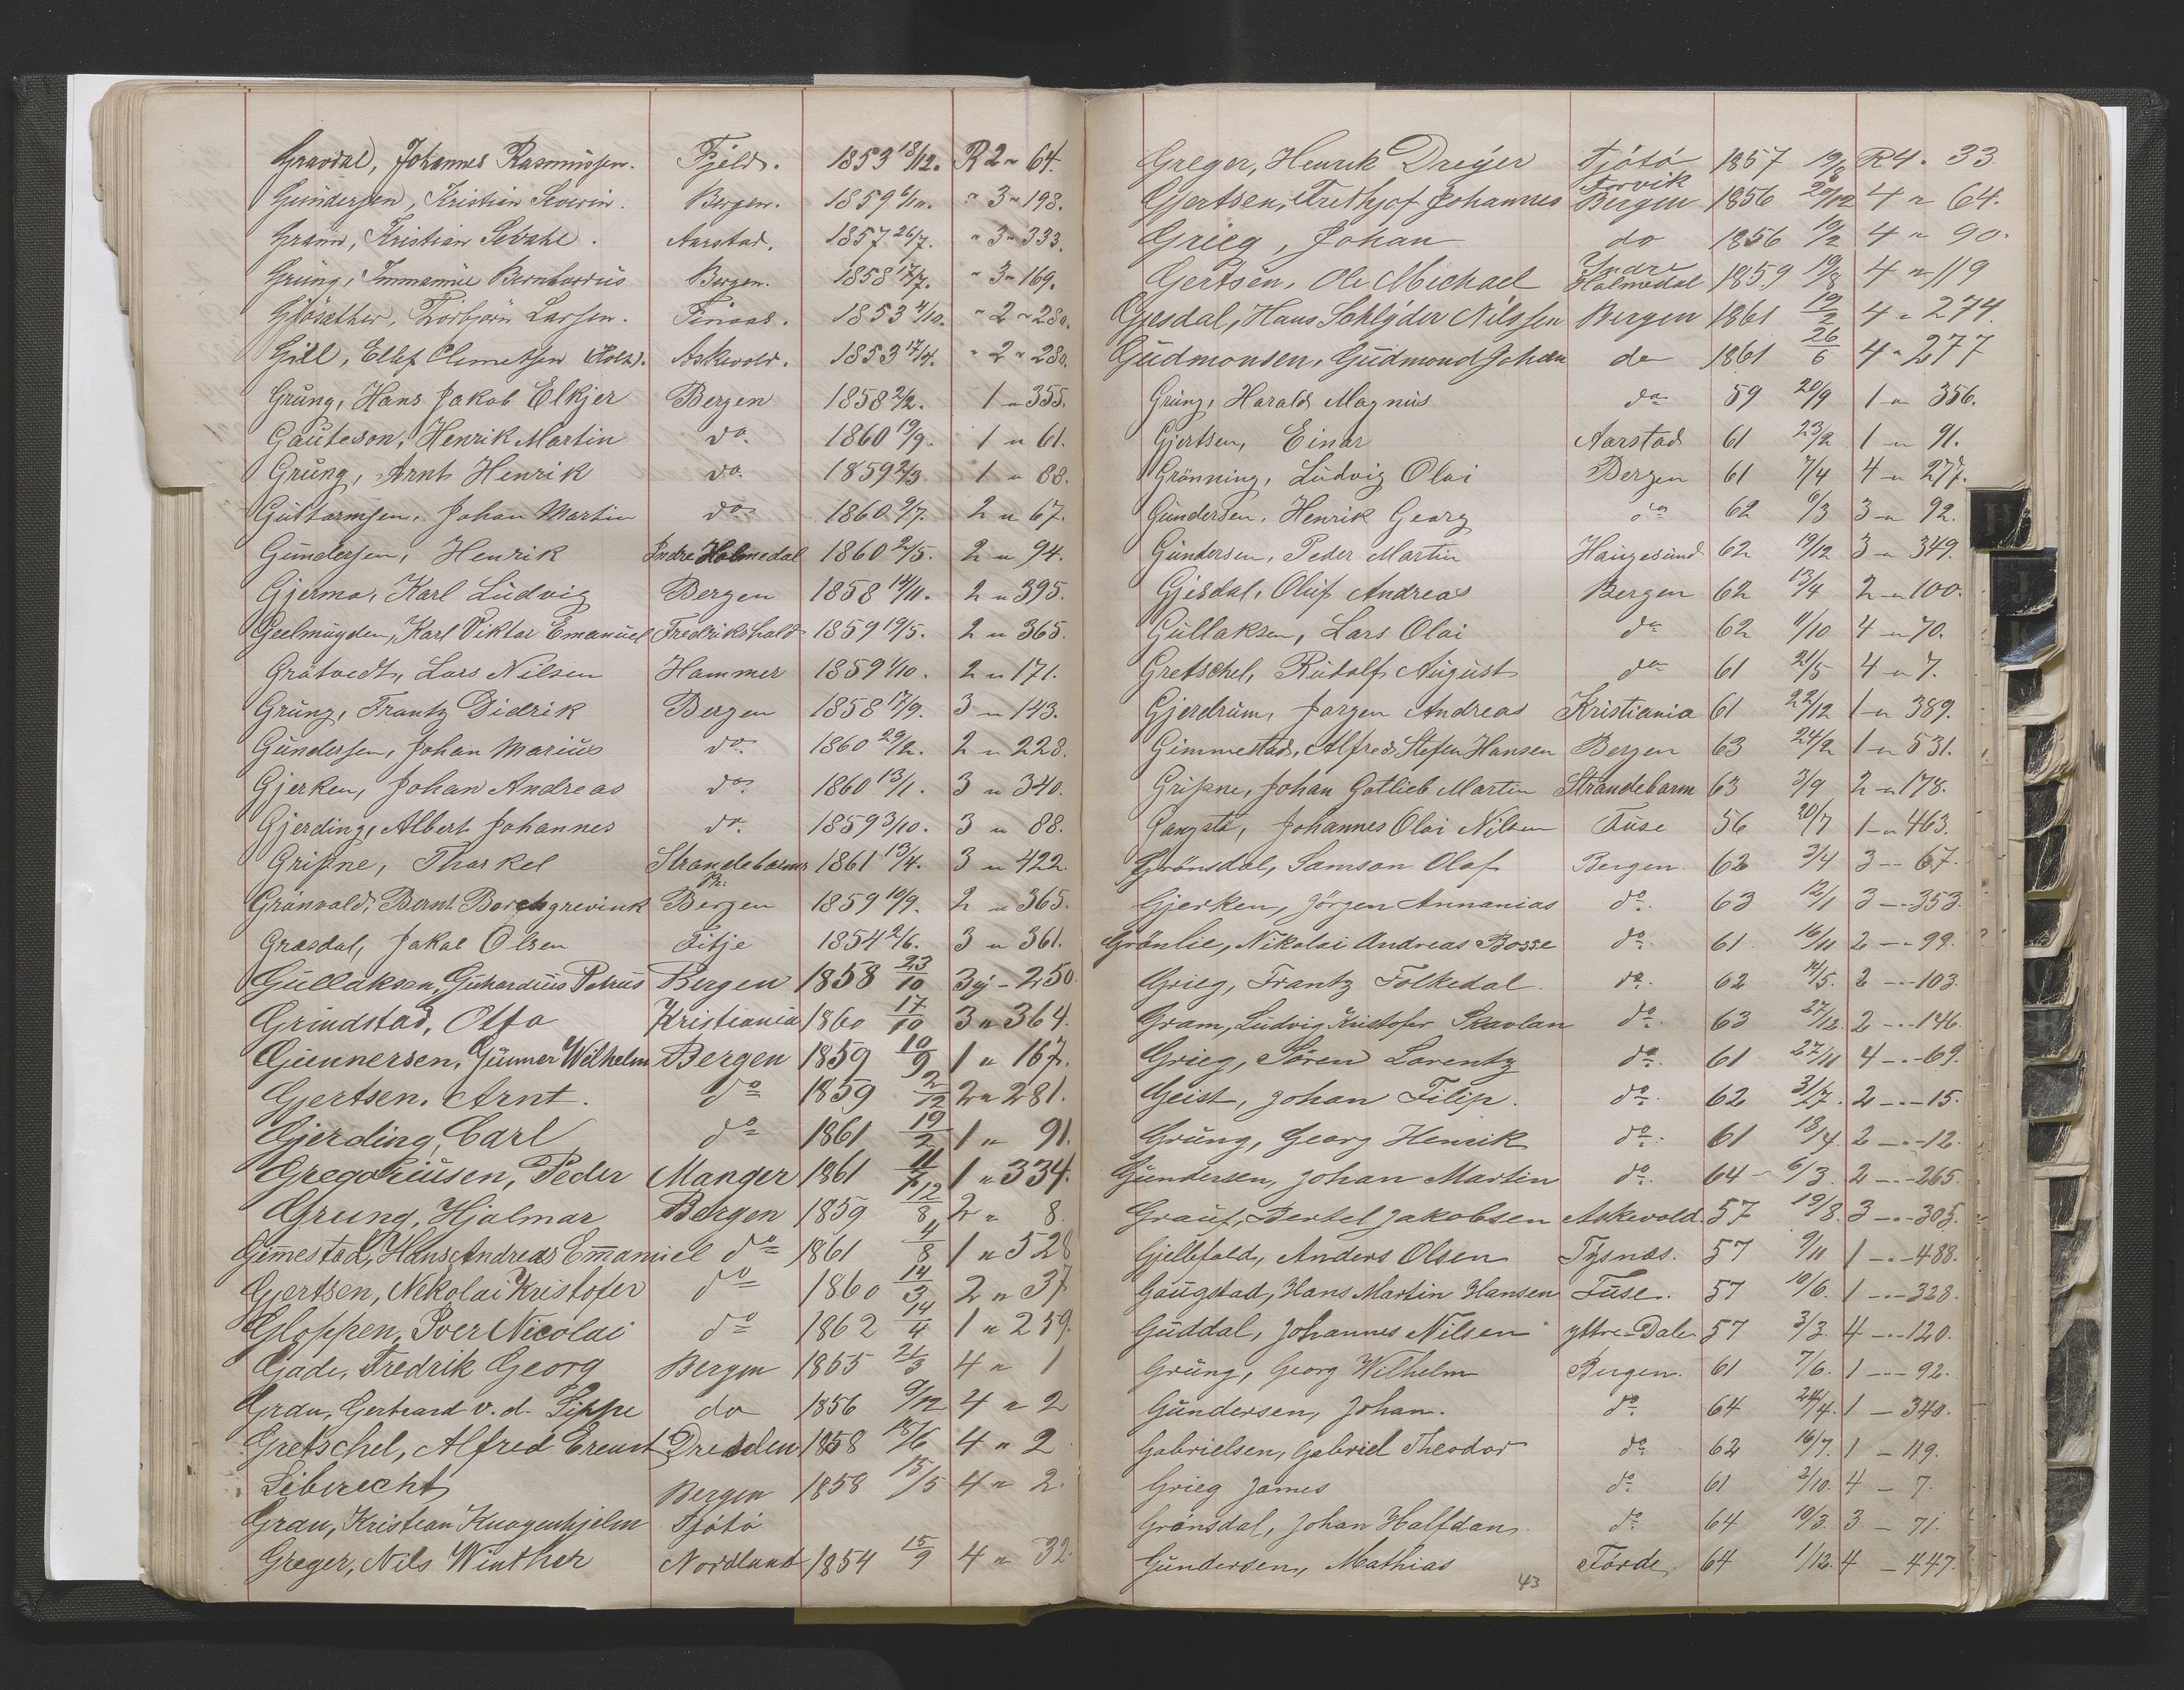 Gravdal, Johannes Rasmussen. Fjeld. 1853 18/12. R 2 " 64.
Gundersen, Kristian Severin. Bergen. 1859 6/10. " 3 " 198.
Gram, Kristian Sevahl. Aarstad. 1857 26/7. " 3 " 333.
Grung, Immanuel Bernhardus Bergen. 1858 17/7. " 3 " 169.
Glösæther, Thorbjørn Larsen. Finaas. 1853 4/10. " 2 " 280.
Gill, Ellef Clemetsen (Holt). Askvold. 1853 17/4. " 2 " 280.
Grung, Hans Jakob Elkjer Bergen 1858 2/2. 1 " 355.
Gauteson, Henrik Martin do. 1860 19/9. 1 " 61.
Grung, Arnt Henrik do. 1859 2/3. 1 " 88.
Guttormsen, Johan Martin do. 1860 9/7. 2 " 67.
Gundersen, Henrik Indre Holmedal 1860 2/5. 2 " 94.
Gjermo, Karl Ludvig Bergen 1858 14/11. 2 " 395.
Geelmuyden, Karl Viktor Emanuel Fredrikshald 1859 19/5. 2 " 365.
Gråtvedt, Lars Nilsen Hammer 1859 1/10. 2 " 171.
Grung, Frantz Didrik Bergen 1858 17/9. 3 " 143.
Gundersen, Johan Marius do. 1860 29/2. 2 " 228.
Gjerken, Johan Andreas do. 1860 13/1. 3 " 340.
Gjerding, Albert Johannes do. 1859 3/10. 3 " 88.
Gripne, Thorkel Strandebarm 1861 13/4. 3 " 422.
Grönvold, Bernt Borchgrevink Bergen 1859 10/9. 2 " 365.
Græsdal, Jakob Olsen Fitje 1854 2/6. 3 " 361.
Gullaksen, Gerhardius Petrus Bergen 1858 23/10 3 " 250.
Grindstad, Olfa Kristiania 1860 17/10 3 " 364.
Gunnersen, Gunner Wilhelm Bergen 1859 10/9 1 " 167.
Gjertsen, Arnt. do 1859 2/12 2 " 281.
Gjerding, Carl do 1861 19/2 1 " 91.
Gregoriusen, Peder Manger 1861 11/7 1 " 334.
Grung, Hjalmar Bergen 1859 12/8 2 " 8.
Gimmestad, Hans Andreas Emanuel do 1861 4/8 1 " 528
Gjertsen, Nikolai Kristofer do 1860 14/3 2 " 37
Gloppen, Iver Nicolai do 1862 14/4 1 " 259.
Gade, Fredrik Georg Bergen 1855 21/3 4 " 1
Gran, Gerhard v. d. Lippe do 1856 9/12 4 " 2
Gretschel, Alfred Ernst Dresden 1858 18/6 4 " 2
Librecht Bergen 1858 15/5 4 " 2.
Gran, Kristian Knagenhjelm Tjötö
Greger, Nils Winther Nordland 1854 15/9 4 " 32.
Greger, Henrik Dreyer Tjötö 1857 19/8 R 4 " 33
Forvik
Gjertsen, Frithjof Johannes Bergen 1856 20/12 4 " 64.
Grieg, Johan do 1856 19/2 4 " 90.
Indre
Gertsen, Ole Michael Holmedal 1859 19/8 4 " 119
Gjesdal, Hans Schlyder Nilssen Bergen 1861 19/2 4 " 274.
Gudmonsen, Gudmond Johan do 1861 26/6 4 " 277
Grung, Harald Magnus do 59 20/9 1 " 356.
Gjertsen, Einar Aarstad 61 23/2 1 " 91.
Grönning, Ludvig Olai Bergen 61 7/4 4 " 277.
Gundersen, Henrik Georg do 62 6/3 3 " 92.
Gundersen, Peder Martin Haugesund 62 19/12 3 " 349.
Gjesdal, Oluf Andreas Bergen 62 13/4 2 " 100.
Gullaksen, Lars Olai do 62 11/10 4 " 70.
Gretschel, Rudolf August do 61 21/5 4 " 7.
Gjerdrum, Jørgen Andreas Kristiania 61 22/12 1 " 389.
Gimmestad, Alfred Stefen Hansen Bergen 63 24/2 1 " 531.
Gripne, Johan Gotlieb Martin Strandebarm 63 3/9 2 " 178.
Gangstö, Johannes Olai Nilsen Fuse 56 20/7 1 " 463.
Grönsdal, Samson Olaf Bergen. 62 3/4 3 " 67.
Gjerken, Jörgen Annanias do. 63 12/1 3 " 353.
Grönlie, Nikolai Andreas Bosse do. 61. 16/11 2 " 99.
Grieg, Frantz Folkedal. do. 62 14/5. 2 " 103.
Gram, Ludvig Kristofer Skavlan do. 63 27/12. 2 " 146.
Grieg, Sören Lorentz do. 61 27/11 4 " 69.
Geist, Johan Filip. do. 62 31/7. 2 " 15.
Grung, Georg Henrik do. 61 18/4. 2 " 12.
Gundersen, Johan Martin do. 64 6/3. 2 " 265.
Grauf, Bertel Jakobsen Askevold. 57 19/8. 3 " 305.
Gjellefald, Anders Olsen Tysnæs. 57 9/11 1 " 488.
Gaugstad, Hans Martin Hansen Fuse. 57 10/6. 1 " 328.
Guddal, Johannes Nilsen yttre-Dale. 57 3/3. 4 " 120.
Grung, Georg Wilhelm Bergen. 61 7/6. 1 " 92.
Gundersen, Johan. do. 64 24/4. 1 - 340.
Gabrielsen, Gabriel Theodor do. 62 16/7. 1 - 119.
Grieg James do. 61 2/10. 4 - 7.
Grönsdal, Johan Halfdan. do. 64 10/3. 3 - 71.
Gundersen, Mathias Förde 64 1/12. 4 - 447.
43